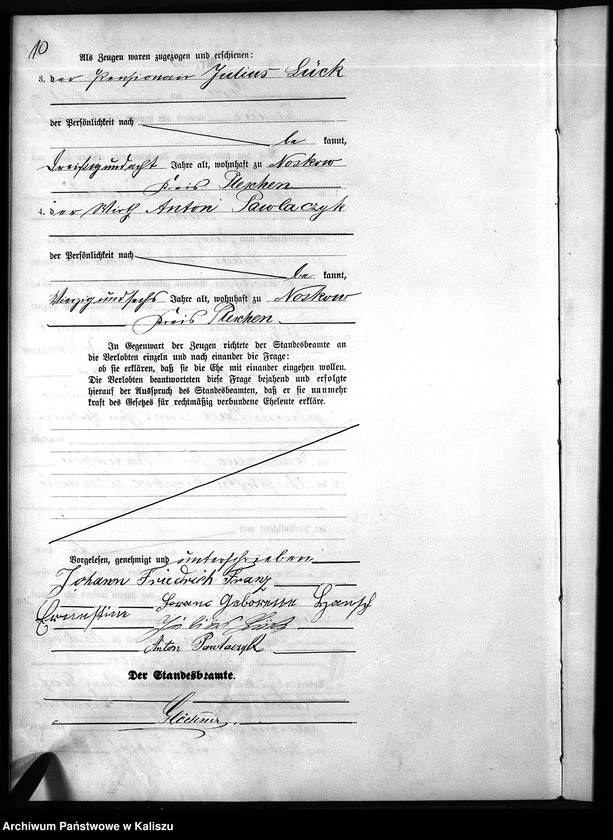 10
Als Zeugen waren zugezogen und erschienen:
3. der Pensionair Julius Lück
der Persönlichkeit nach
be kannt,
dreißigundacht Jahre alt, wohnhaft zu Noskow
Kreis Pleschen
4. der Wirth Anton Pawlaczyk
der Persönlichkeit nach
be kannt,
vierzigundsechs Jahre alt, wohnhaft zu Noskow
Kreis Pleschen.
In Gegenwart der Zeugen richtete der Standesbeamte an
die Verlobten einzeln und nach einander die Frage:
ob sie erklären, daß sie die Ehe mit einander eingehen wollen.
Die Verlobten beantworteten diese Frage bejahend und erfolgte
hierauf der Ausspruch des Standesbeamten, daß er sie nunmehr
kraft des Gesetzes für rechtmäßig verbundene Eheleute erkläre.
Vorgelesen, genehmigt und unterschrieben
Johann Friedrich Franz
Ernestine Geborene Hansch
Julius Lück
Anton Pawlaczyk
Der Standesbeamte.
Glöckner
Archiwum Państwowe w Kaliszu